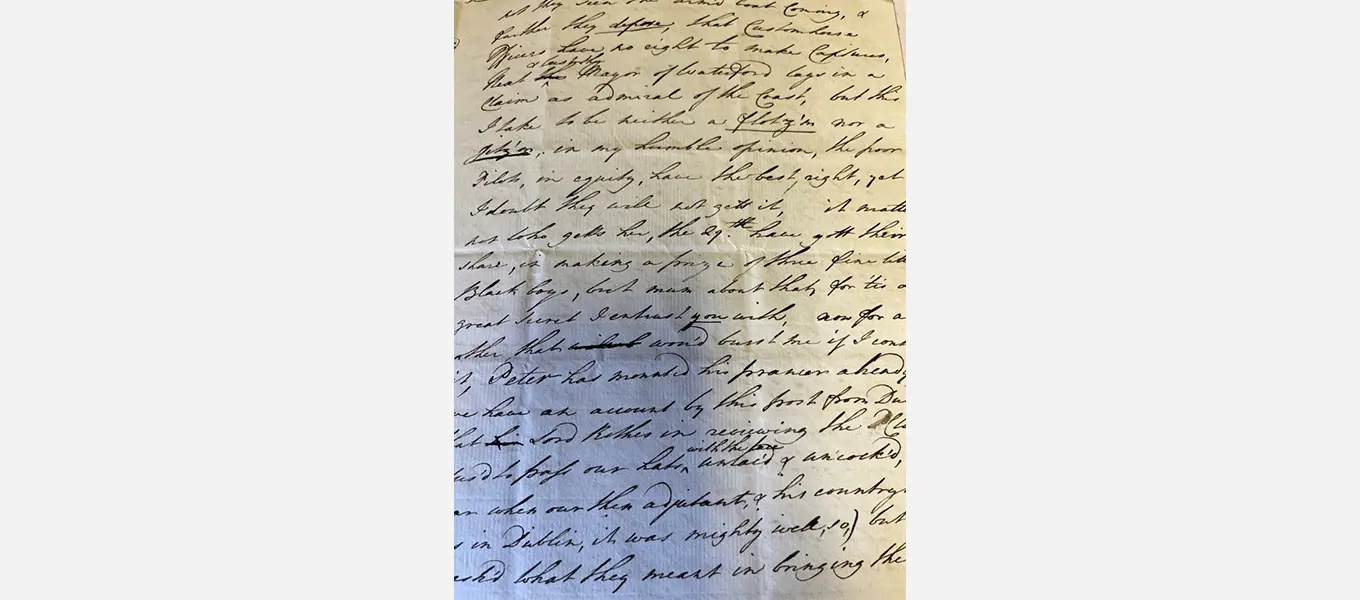 as they seen the arm'd boat Coming, &
further they depose, that Customhouse
Officers have no right to make Captures,
that the Mayor of Waterford lays in a
Claim as admiral of the Coast, but this
I take to be neither a flotz'm nor a
jetz'm, in my humble opinion, the poor
Pilots, in equity, have the best right, yet
I doubt they will not gett it, it matte
not who getts her, the 29th. have gott their
share, in making a prize of three fine litt
Black boys, but mum about that, for 'tis a
great secret I entrust you with, now for a
other, that wou'd burst me if I conc
it, Peter has mounted his prancer already
we have an account by this post from Du
that Lord Rothes in reviewing the
us'd to pass our hats with the lace unlac'd & uncock'd,
when our then adjutant, & his country
in Dublin, it was mighty well, so,) but
ask'd what they meant in bringing the